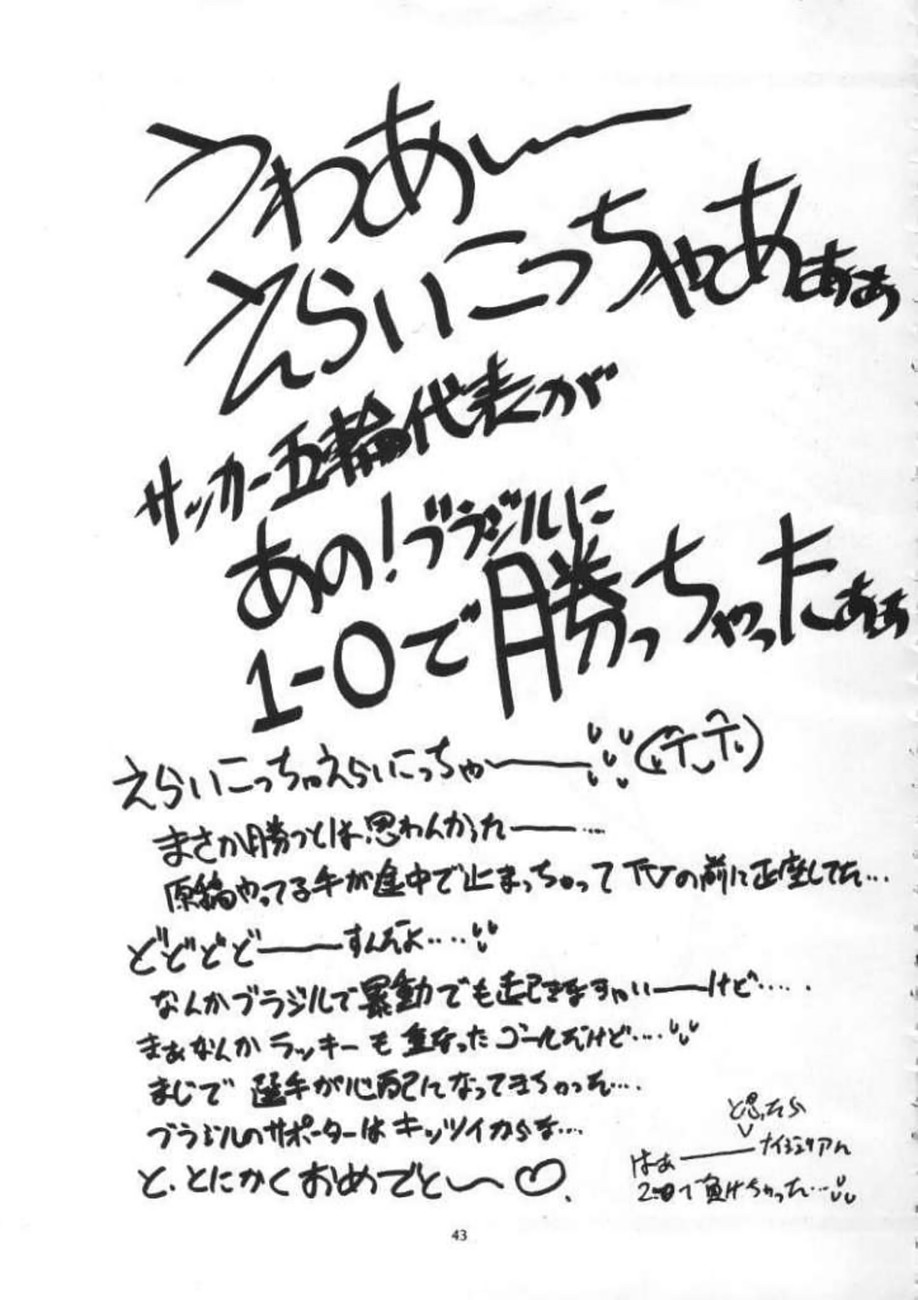 うわあ〜ー
えらいこっちゃあぁぁ
サッカー五輪代表が
あの！ブラジルに
1-0で勝っちゃったぁぁ
えらいこっちゃえらいこっちゃ〜ー
まさか勝つとは思わんかったー…
原稿やってる手が途中で止まっちゃってTVの前に正座してた…
どどどどーーすんだよ‥‥
なんかブラジルで暴動でも起きなきゃいーーけど‥‥.
まぁなんかラッキーも重なったゴールだけど‥‥
まじで選手が心配になってきちゃった…
ブラジルのサポーターはキッツイからな…
と、とにかくおめでと〜♡.
と思ったら
はぁーーナイジェリアに
2-0で負けちゃった…
43